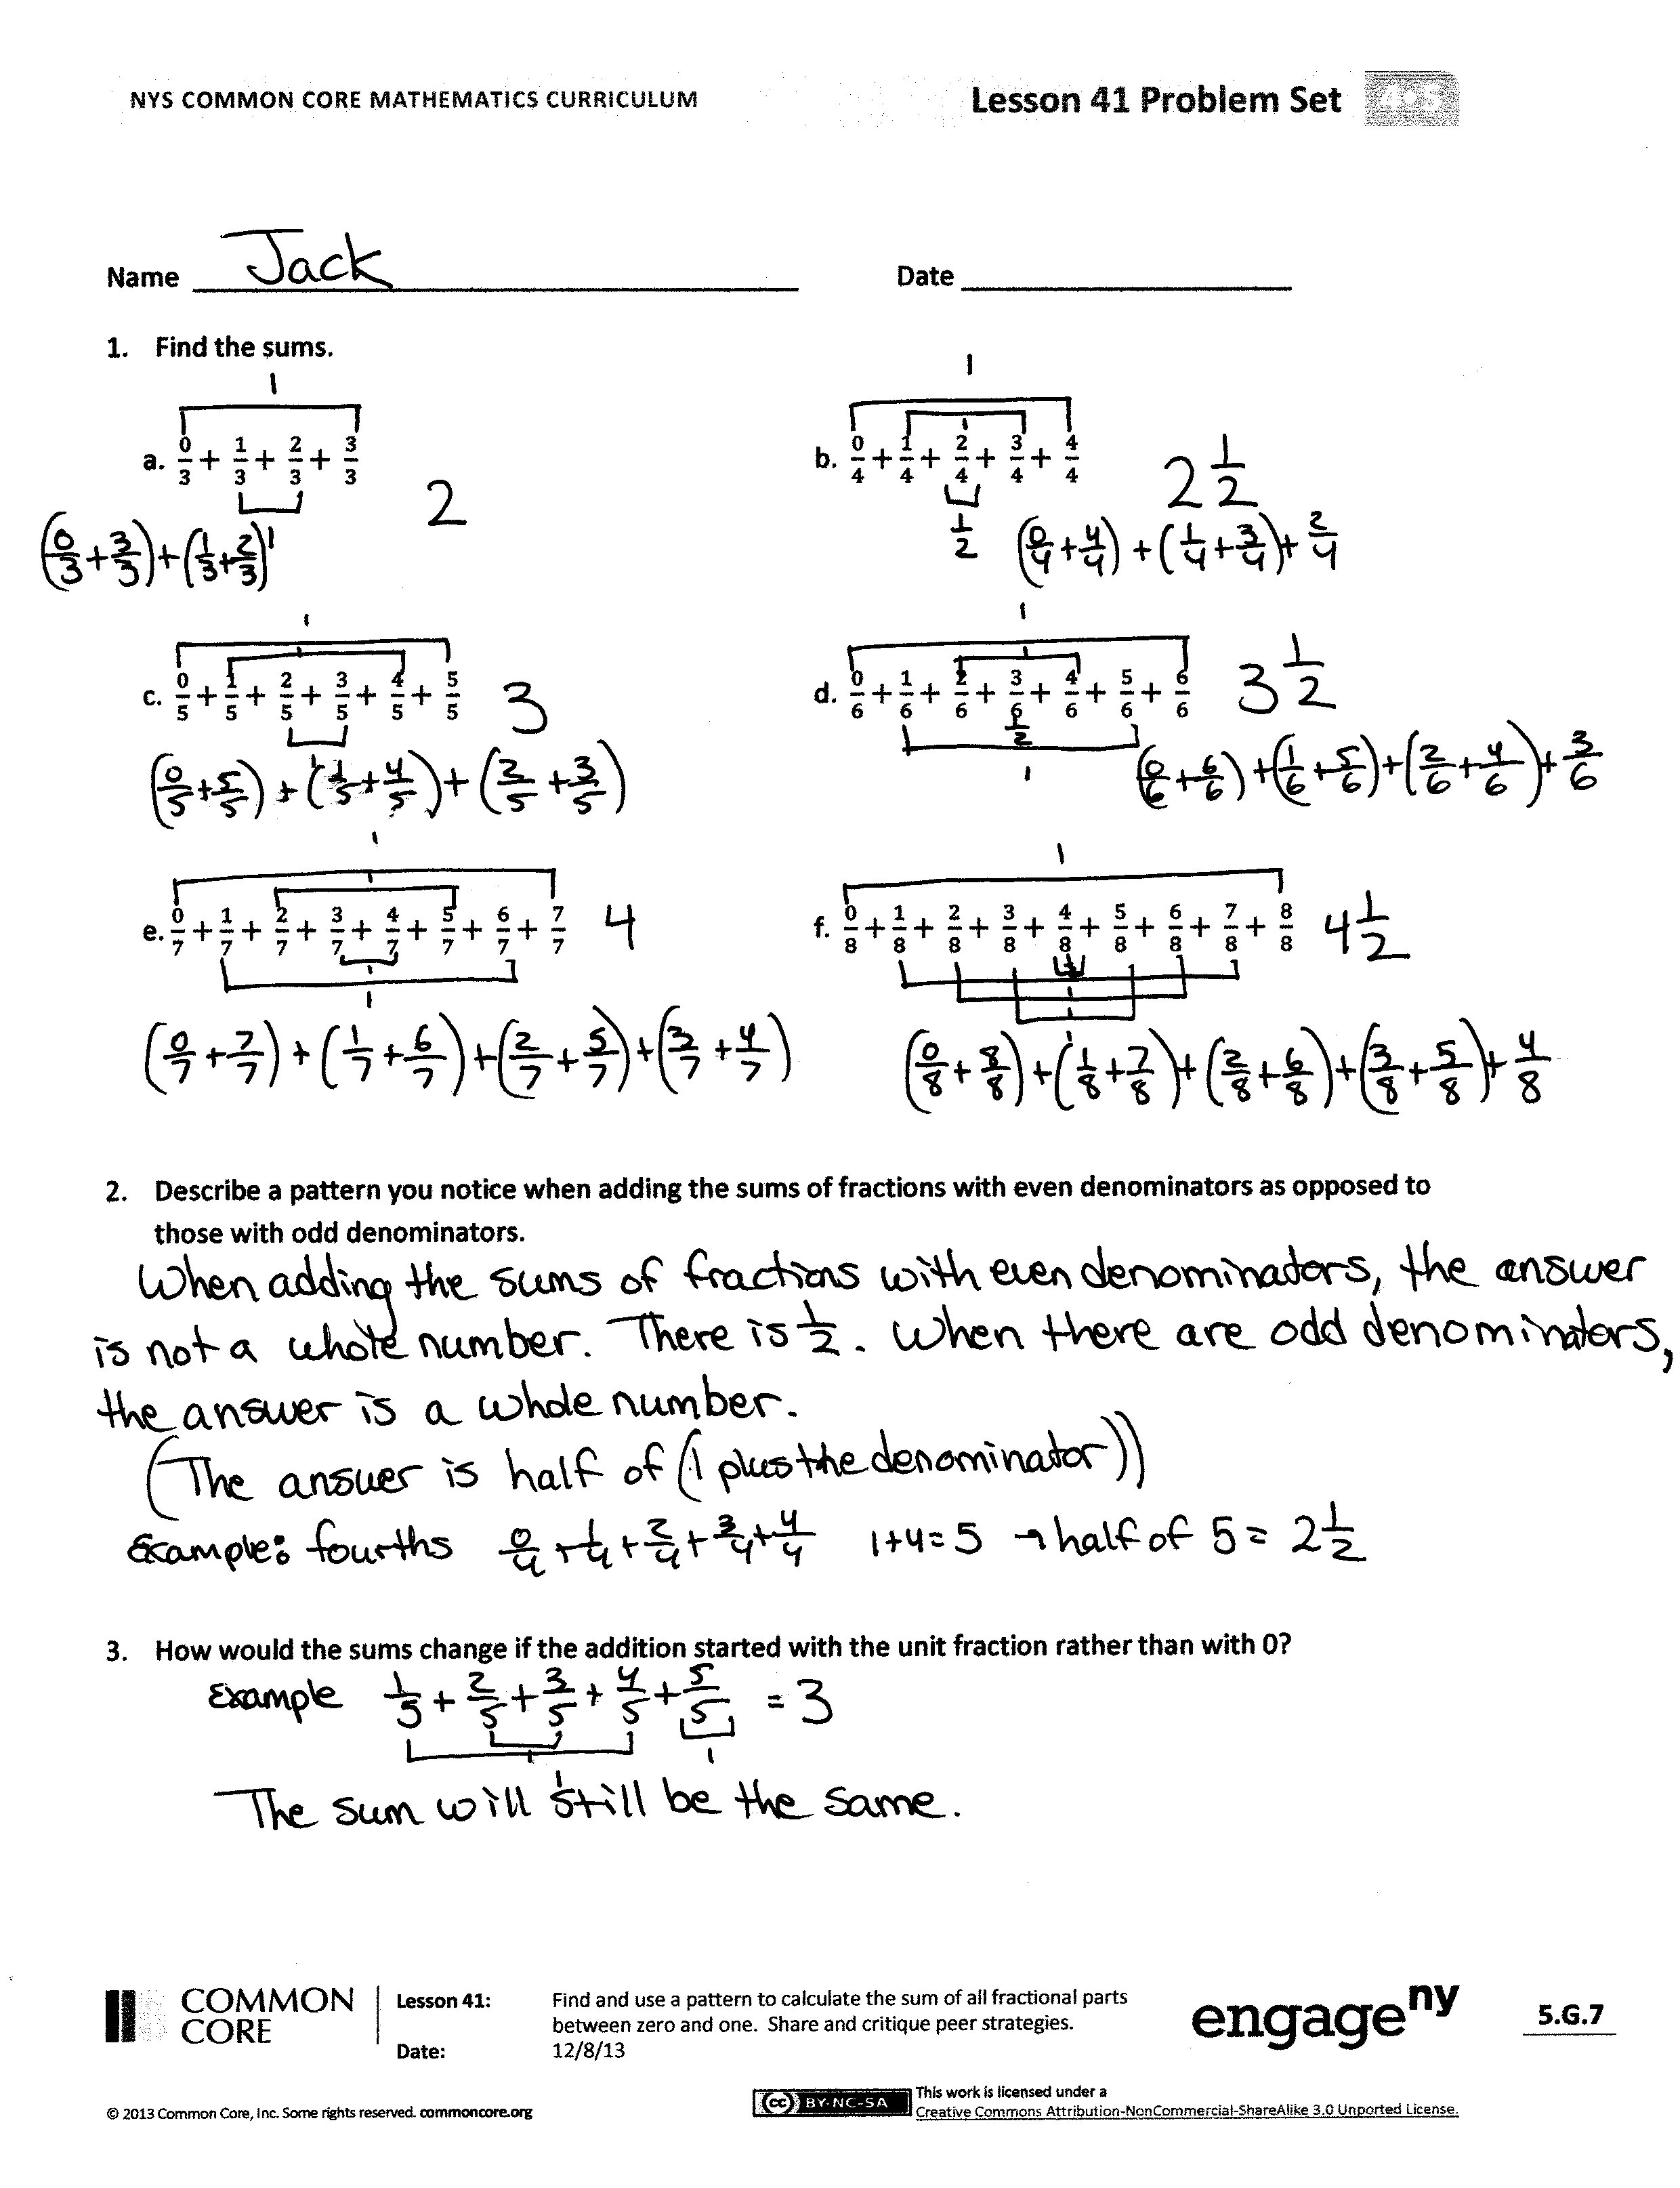 NYS COMMON CORE MATHEMATICS CURRICULUM
Lesson 41 Problem Set 4•5
Name Jack
Date
1. Find the sums.
1
a. 0/3 + 1/3 + 2/3 + 3/3
2
1
(0/3 + 3/3) + (1/3 + 2/3)
1
1
b. 0/4 + 1/4 + 2/4 + 3/4 + 4/4
2 1/2
1/2
(0/4 + 4/4) + (1/4 + 3/4) + 2/4
1
1
c. 0/5 + 1/5 + 2/5 + 3/5 + 4/5 + 5/5
3
1
(0/5 + 5/5) + (1/5 + 4/5) + (2/5 + 3/5)
1
1
d. 0/6 + 1/6 + 2/6 + 3/6 + 4/6 + 5/6 + 6/6
3 1/2
1/2
1
(0/6 + 6/6) + (1/6 + 5/6) + (2/6 + 4/6) + 3/6
1
1
e. 0/7 + 1/7 + 2/7 + 3/7 + 4/7 + 5/7 + 6/7 + 7/7
4
1
1
(0/7 + 7/7) + (1/7 + 6/7) + (2/7 + 5/7) + (3/7 + 4/7)
1
f. 0/8 + 1/8 + 2/8 + 3/8 + 4/8 + 5/8 + 6/8 + 7/8 + 8/8
4 1/2
1
1
1
(0/8 + 8/8) + (1/8 + 7/8) + (2/8 + 6/8) + (3/8 + 5/8) + 4/8
2. Describe a pattern you notice when adding the sums of fractions with even denominators as opposed to
those with odd denominators.
When adding the sums of fractions with even denominators, the answer
is not a whole number. There is 1/2. When there are odd denominators,
the answer is a whole number.
(The answer is half of (1 plus the denominator))
Example: fourths 0/4 + 1/4 + 2/4 + 3/4 + 4/4 1+4=5 → half of 5 = 2 1/2
3. How would the sums change if the addition started with the unit fraction rather than with 0?
Example 1/5 + 2/5 + 3/5 + 4/5 + 5/5 = 3
1
1
1
The sum will still be the same.
COMMON
CORE
Lesson 41:
Find and use a pattern to calculate the sum of all fractional parts
between zero and one. Share and critique peer strategies.
Date:
12/8/13
engageny
5.G.7
© 2013 Common Core, Inc. Some rights reserved. commoncore.org
cc BY-NC-SA
This work is licensed under a
Creative Commons Attribution-NonCommercial-ShareAlike 3.0 Unported License.